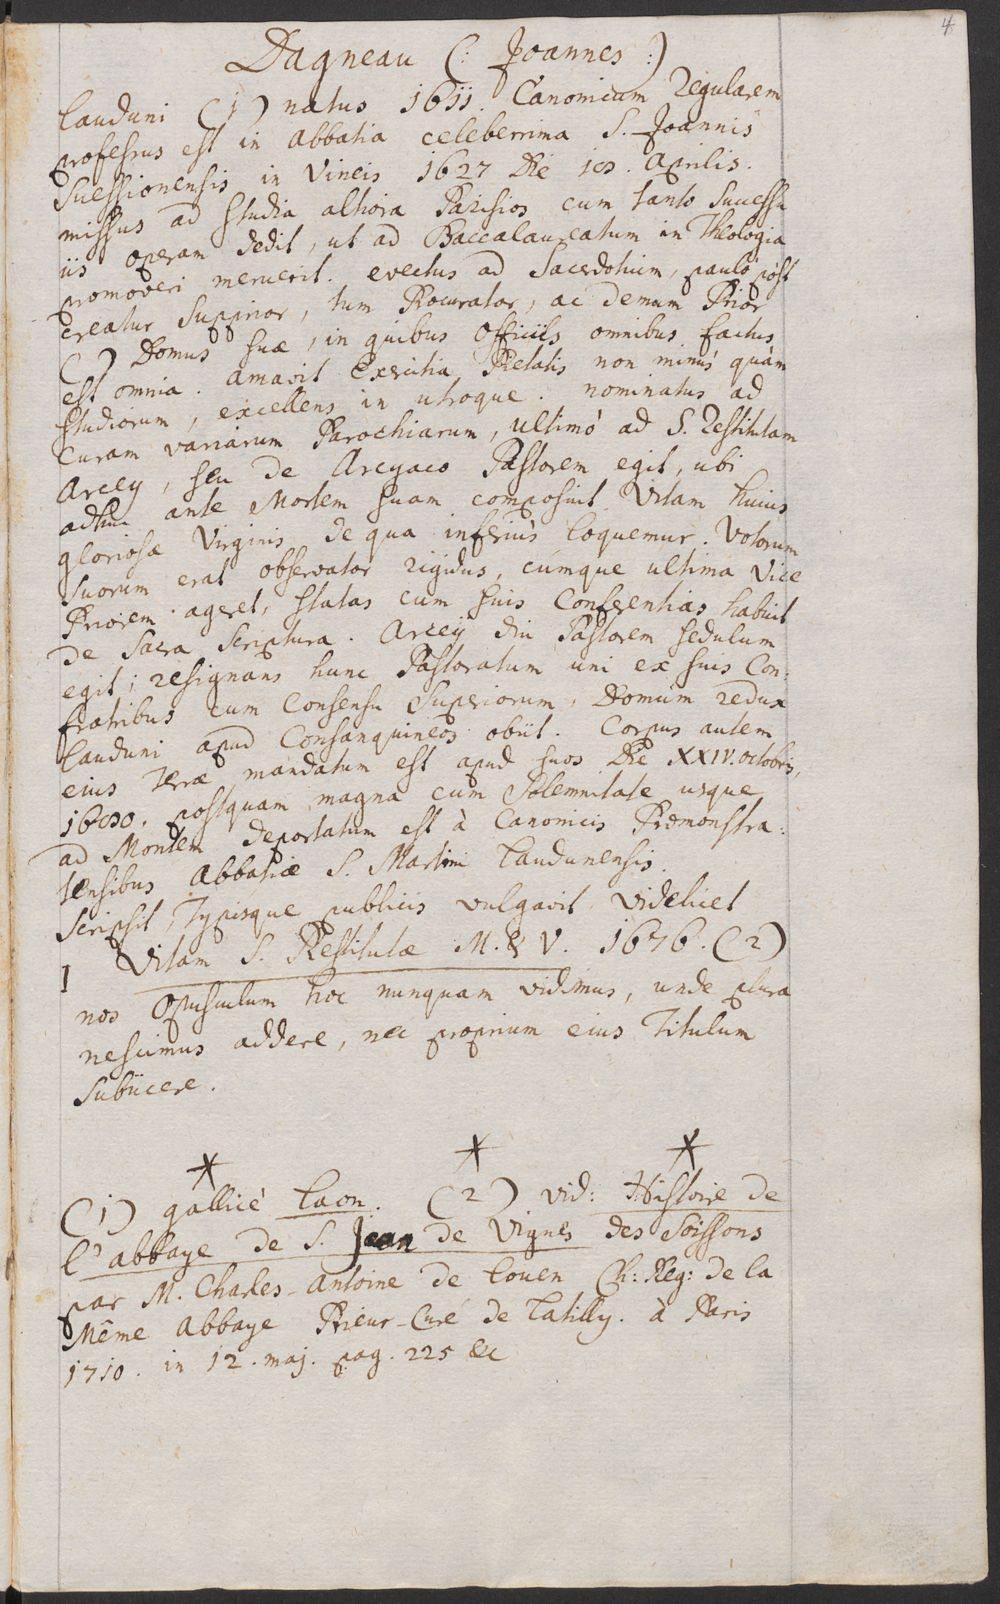 4
Dagneau (: Joannes :)
Lauduni (1) natus 1611. Canonicum Regularem
professus est in Abbatia celeberrima S. Joannis
Suessionensis in Vineis 1627 Die 10. Aprilis.
missus ad studia altiora Parisios cum tanto successu
iis operam dedit, ut ad Baccalaureatum in Theologia
promoveri meruerit. evectus ad Sacerdotium, paulò post
creatur Supprior, tum Procurator, ac demum Prior
( ) Domus suæ, in quibus officiis omnibus factus
est omnia. amavit Exercitia Pietatis non minùs quàm
studiorum, excellens in utroque. nominatus ad
Curam variarum Parochiarum, ultimò ad S. Restitutam
Arcey, seu de Arcyaco Pastorem egit, ubi
adhuc ante Mortem suam composuit Vitam huius
gloriosæ Virginis de qua inferiùs loquemur. Votorum
suorum erat observator rigidus, cúmque ultima vice
Priorem ageret, statas cum suis Conferentias habuit
de Sacra Scriptura. Arceij diu Pastorem sedulum
egit; resignans hunc Pastoratum uni ex suis Con-
fratribus cum Consensu Superiorum, Domum redux
Lauduni apud Consanguineos obiit. Corpus autem
eius terræ mandatum est apud suos Die XXIV. octobris,
postquam magna cum Solemnitate usque
ad Montem deportatum est à Canonicis Præmonstra-
tensibus Abbatiæ S. Martini Laudunensis.
Scripsit, Typisque publicis vulgavit videlicet
I Vitam S. Restitutæ M. & V. 1676. (2)
nos Opusculum hoc nunquam vidimus, unde plura
nescimus addere, nec proprium eius Titulum
Subiicere.
* * *
(1) gallicè Laon. (2) vid: Histoire de
l'abbaye de S. Jean de Vignes des Soissons
par M. Charles-Antoine de Louen Ch: Reg: de la
Même Abbaye Prieur-Curé de Latilly. à Paris
1710. in 12. maj. pag. 225 &c